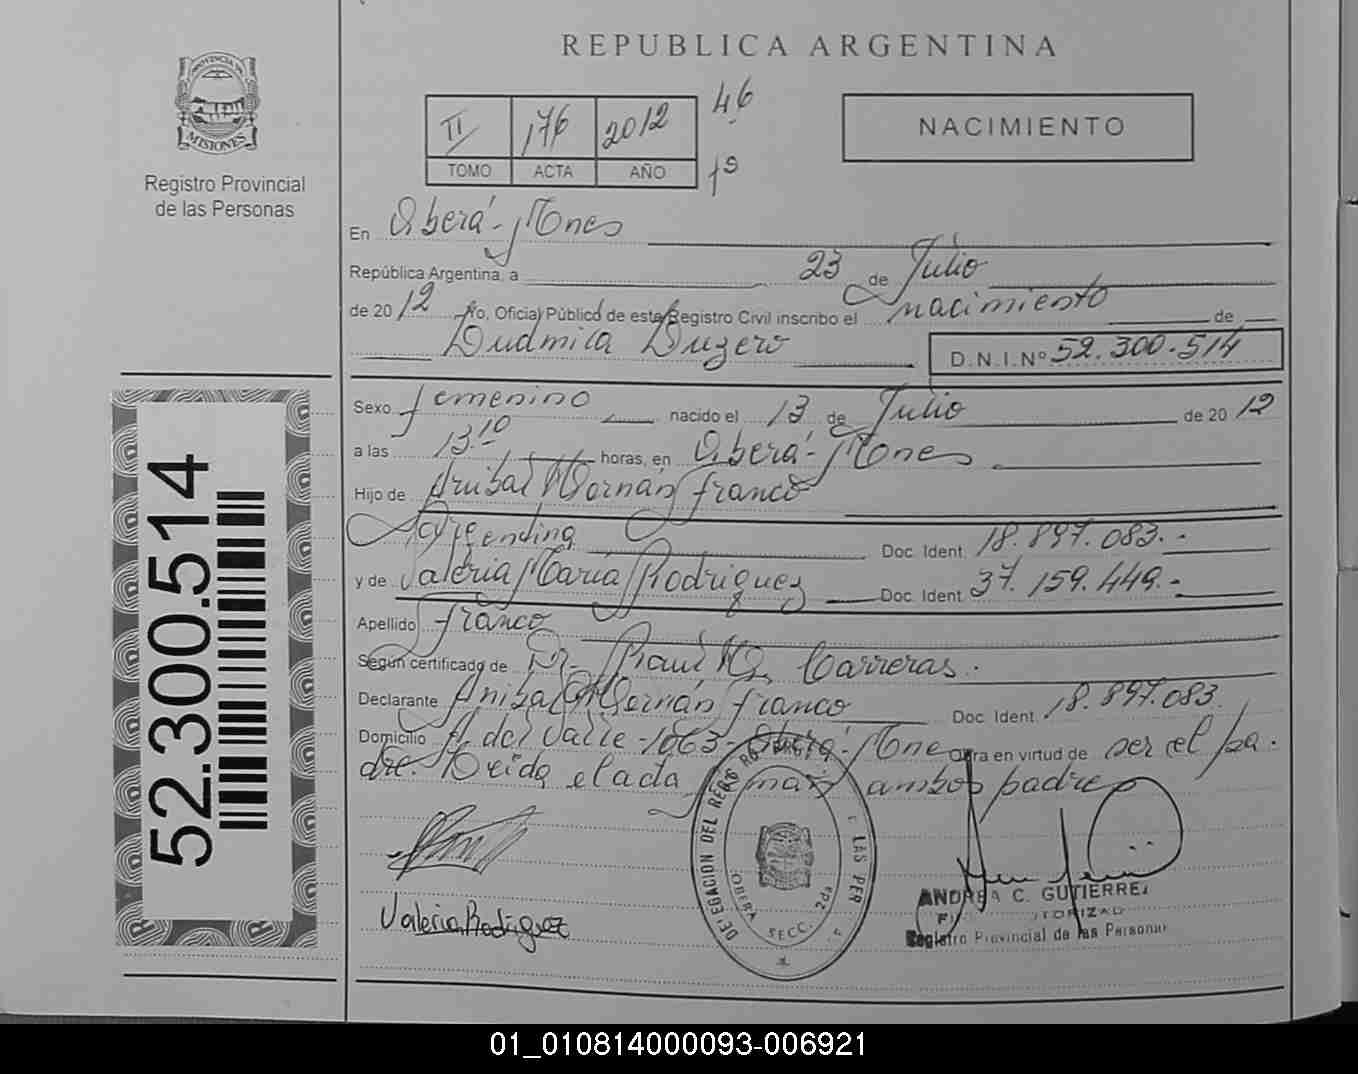 REPUBLICA ARGENTINA
PROVINCIA DE
MISIONES
Registro Provincial
de las Personas
II 176 2012 46
TOMO ACTA AÑO 1º
NACIMIENTO
En Oberá - Mnes
República Argentina, a 23 de Julio
de 2012 Yo, Oficial Público de este Registro Civil inscribo el nacimiento de
Ludmila Luzero D.N.I.Nº 52.300.514
Sexo femenino nacido el 13 de Julio de 2012
a las 13.10 horas, en Oberá - Mnes
Hijo de Anibal Hernán Franco
Argentina Doc. Ident. 18.897.083.-
y de Valeria María Rodriguez Doc. Ident. 37.159.449.-
Apellido Franco
Según certificado de Dr. Raúl Carreras.
Declarante Anibal Hernán Franco Doc. Ident. 18.897.083.
Domicilio A. del Valle - 1063 - Oberá - Mnes Obra en virtud de ser el pa-
dre. Leida el acta ambos padres
Valeria Rodriguez
DELEGACION DEL REG
LAS PER
OBERA SECC. 2da
ANDREA C. GUTIERREZ
Registro Provincial de las Personas
52.300.514
01_010814000093-006921